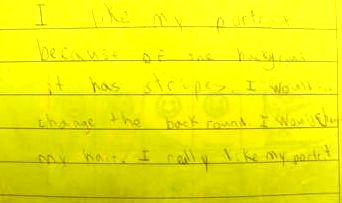 I like my portrait
because of the
it has stripes. I would
change the back round I would
my hair. I really like my portrit